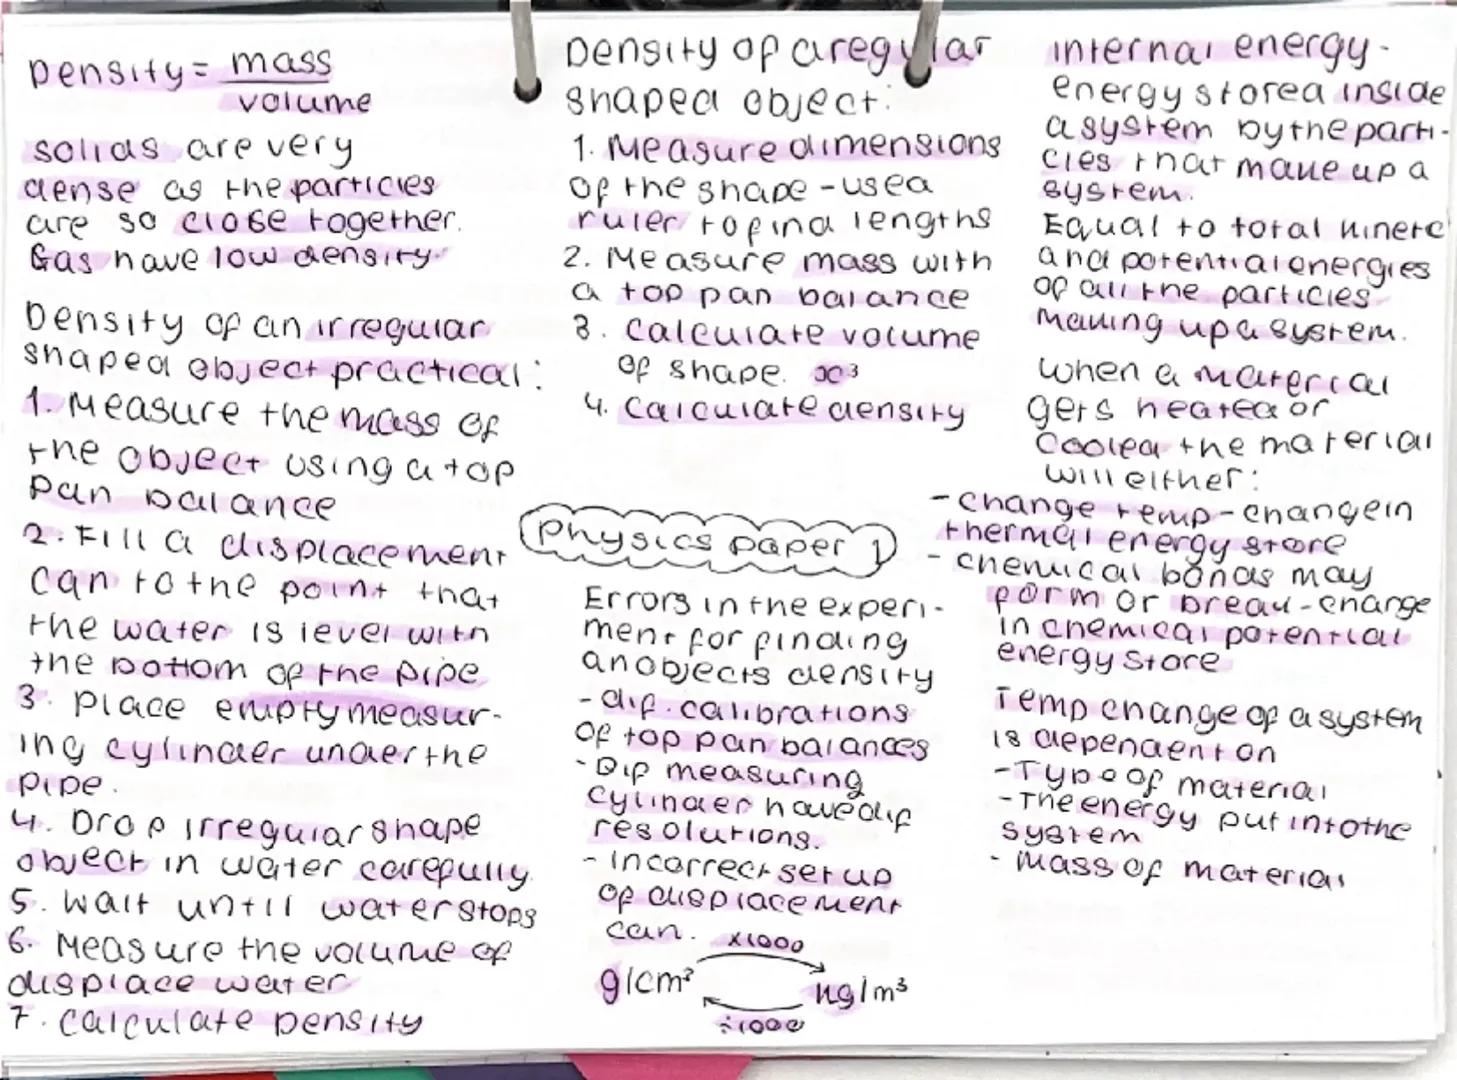 Density = mass
volume
solids are very
dense as the particles
are so close together.
Gas have low density
Density of an irregular
shaped object practical:
1. Measure the mass of
the object using a top
pan balance
2. Fill a displacement
can to the point that
the water is level with
the bottom of the pipe
3. Place empty measur-
ing cylinder under the
pipe
4. Drop irregular shape
object in water carefully
5. Wait until water stops
6. Measure the volume of
displace water
7. Calculate Density
Density of a regular
shaped object.
1. Measure dimensions
of the shape - use a
ruler to find lengths
2. Measure mass with
a top pan balance
3. Calculate volume
of shape. x³
4. Calculate density
Physics paper 1
Errors in the experi-
ment for finding
an objects density
- dif. calibrations
of top pan balances
- Dif measuring
cylinder have dif
resolutions.
- Incorrect set up
of displacement
can.
x1000
g/cm³ kg/m³
÷1000
internal energy -
energy stored inside
a system by the parti-
cles that make up a
system.
Equal to total kinetc
and potential energies
of all the particles
making up a system.
When a material
gets heated or
cooled the material
will either:
- change temp - change in
thermal energy store
- chemical bonds may
form or break - change
in chemical potential
energy store
Temp change of a system
is dependent on
- Type of material
- The energy put into the
system
- Mass of material